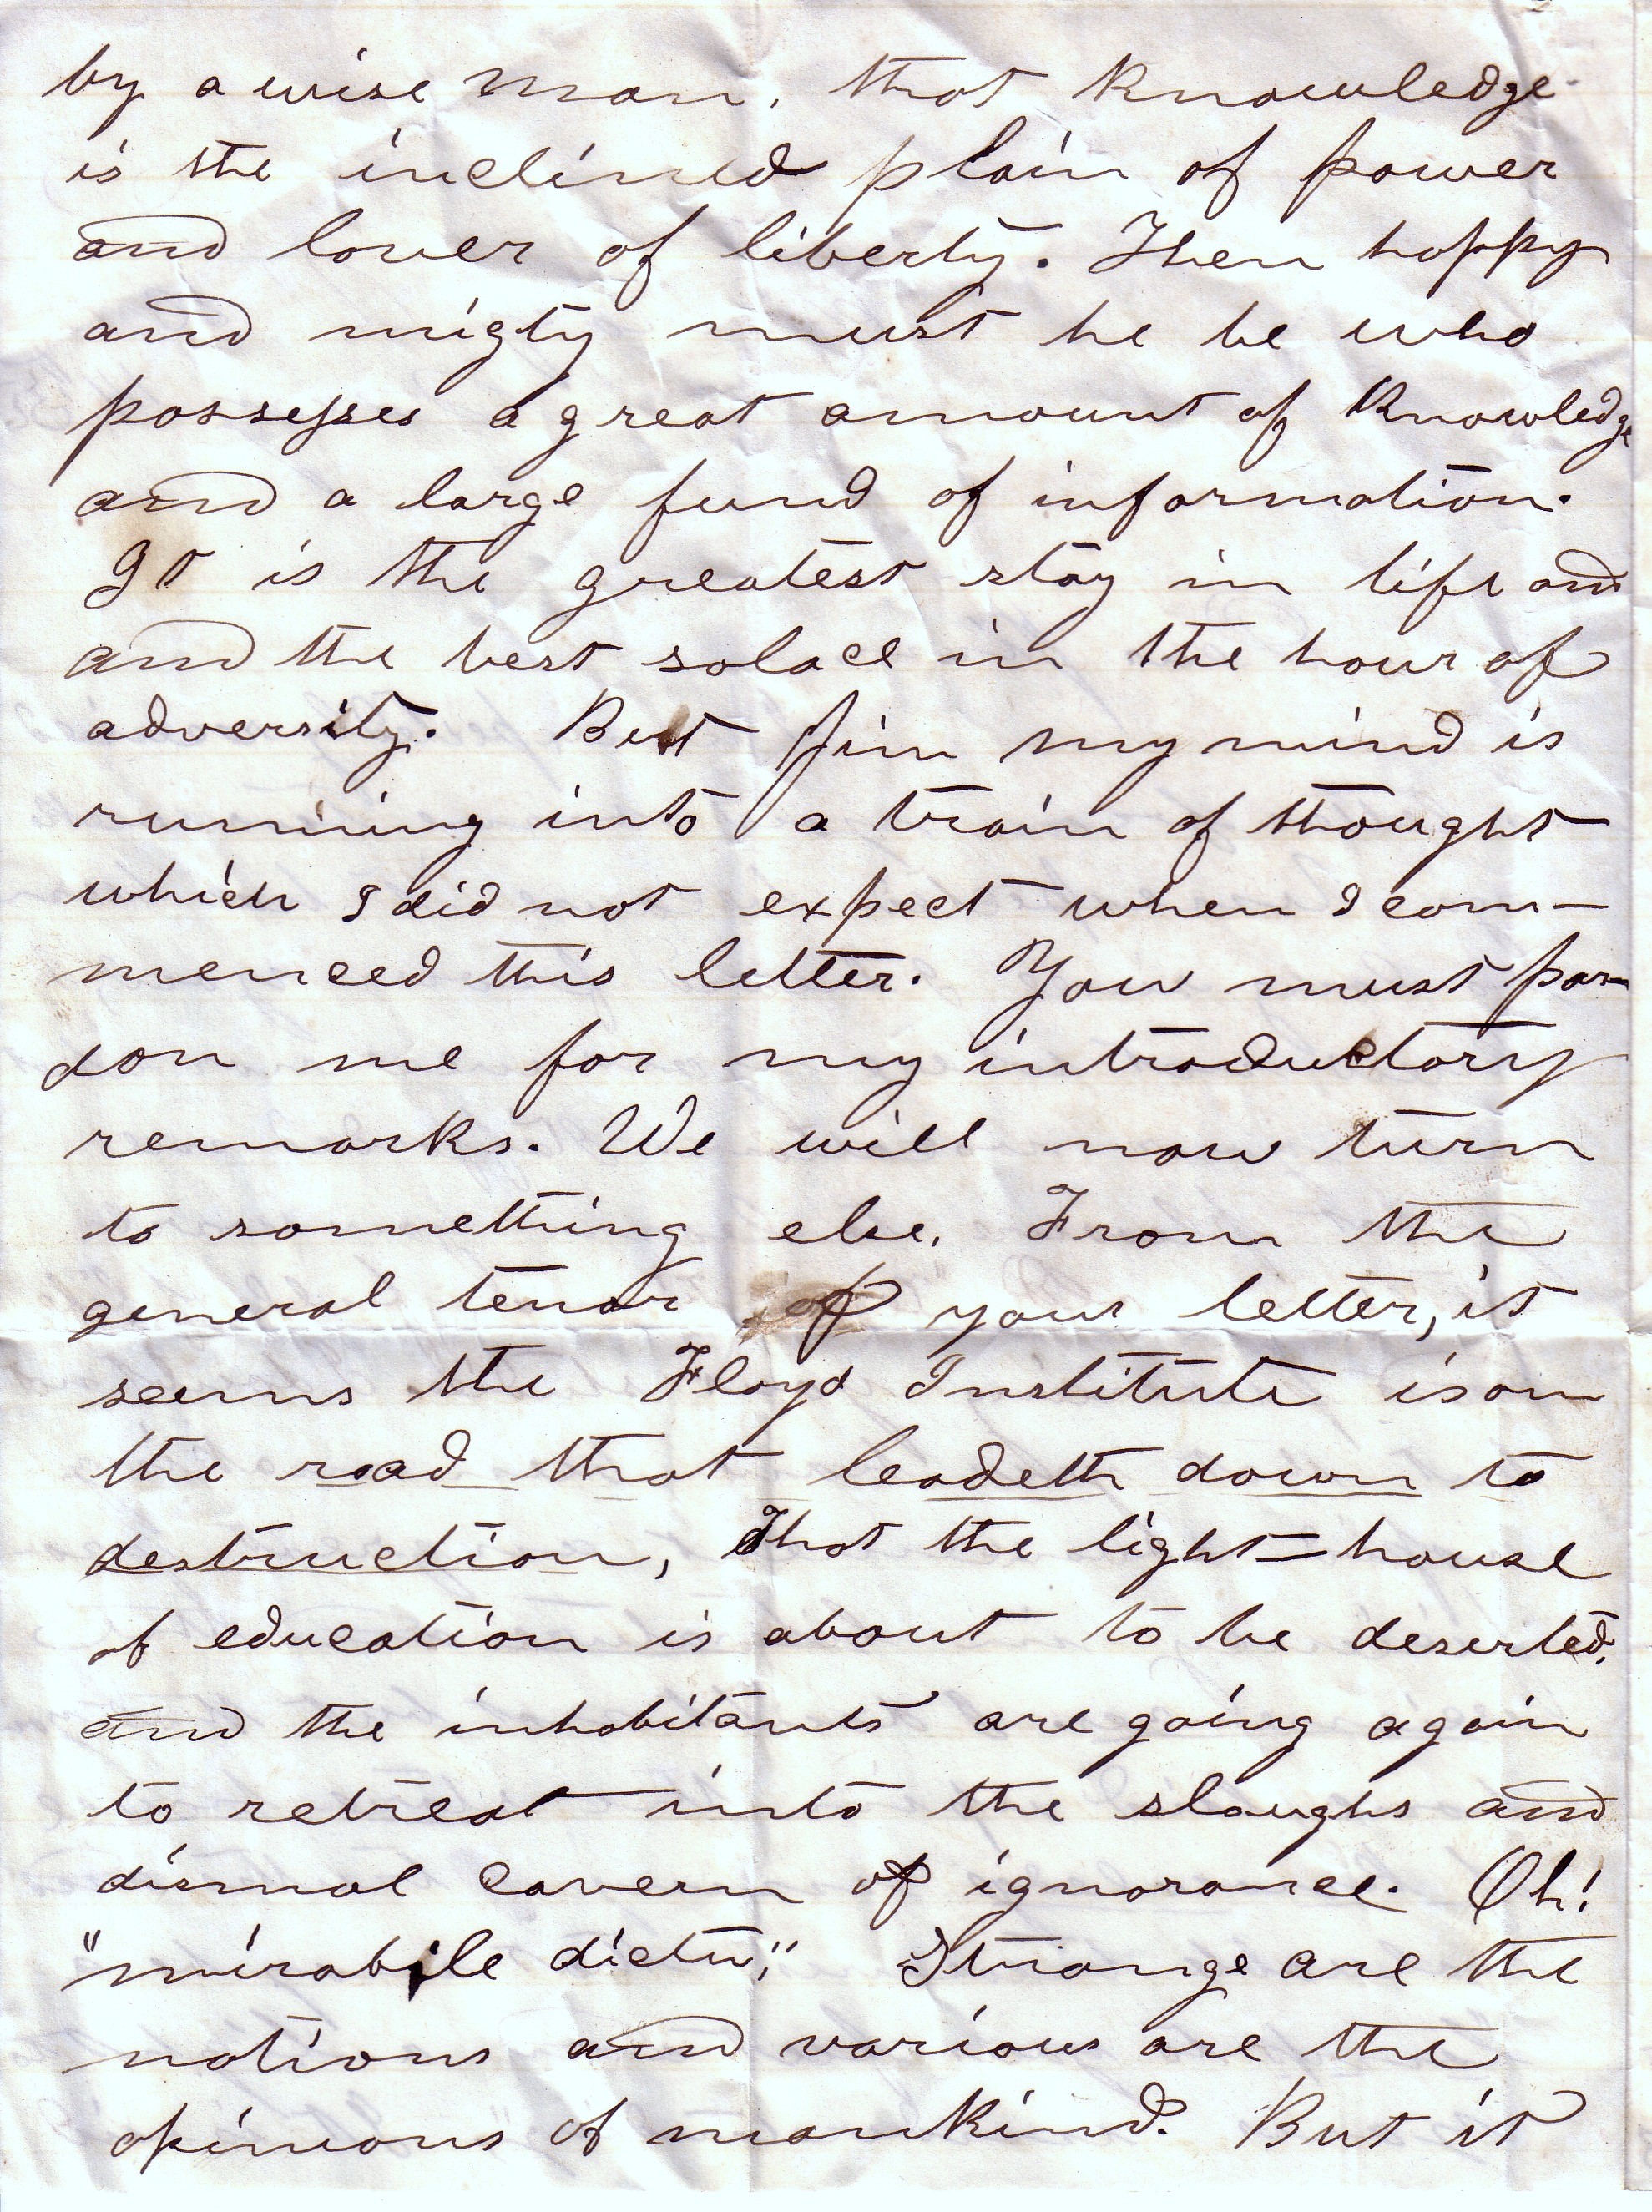 by a wise man. that Knowledge
is the inclined plain of power
and lover of liberty. Then happy
and migty must he be who
possesses a great amount of Knowledge
and a large fund of information.
It is the greatest stay in life and
and the best solace in the hour of
adversity. But Jim my mind is
running into a train of thought
which I did not expect when I com-
menced this letter. You must par-
don me for my introductory
remarks. We will now turn
to something else. From the
general tenor of your letter, it
seems the Floyd Institute is on
the road that leadeth down to
destruction, That the light=house
of education is about to be deserted,
and the inhabitants are going again
to retreat into the sloughs and
dismal cavern of ignorance. Oh!
"mirabile dictu," Strange are the
notions and various are the
opinions of mankind. But it